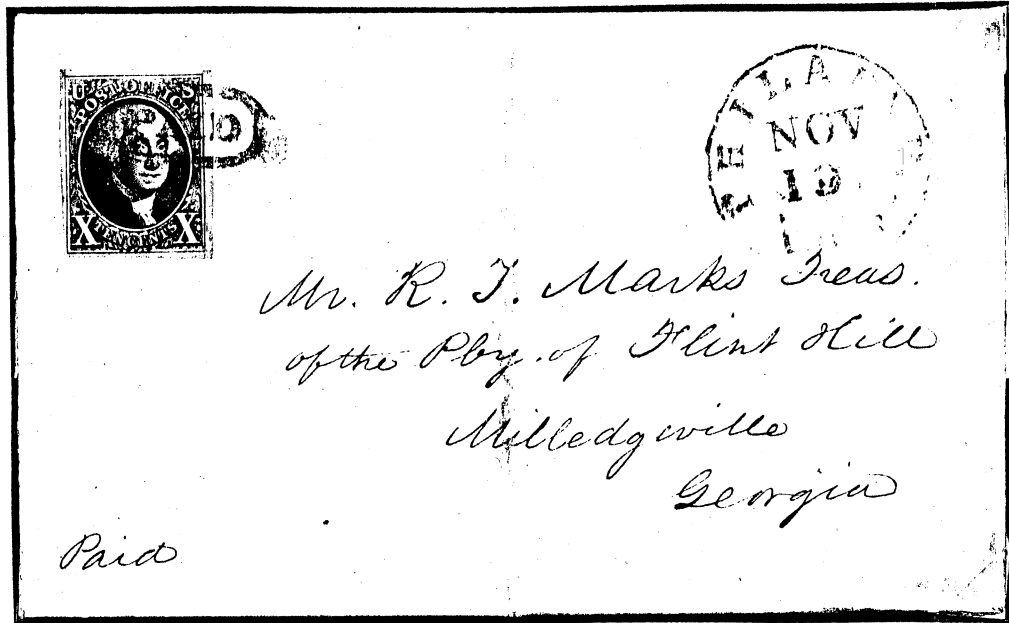 U S
POST OFFICE
X TEN CENTS X
NOV
19
Mr. R. T. Marks Treas.
of the Pby. of Flint Hill
Milledgville
Georgia
Paid